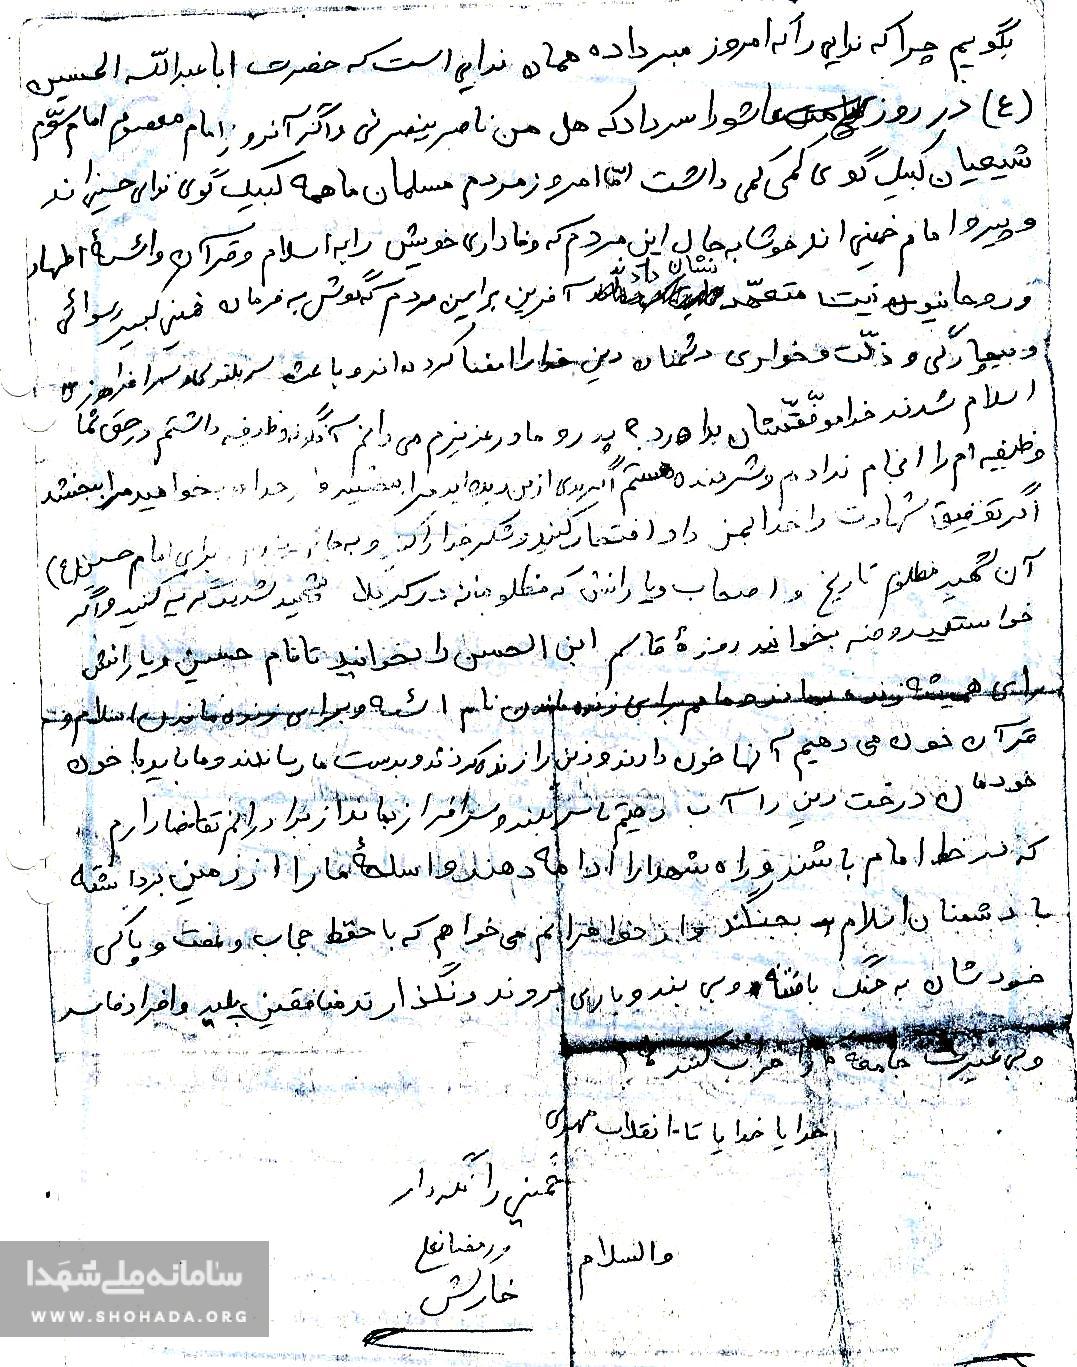 بگویم چرا که ندایی را که امروز میداده همان ندایی است که حضرت اباعبدالله الحسین
(ع) در روز عاشورا سر داد که هل من ناصر ینصرنی و اگر آنروز امام معصوم امام سوّم
شیعیان لبیک گوی کمی داشت امّا امروز مردم مسلمان ما همه لبیک گوی ندای حسین اند
و پیرو امام خمینی اند خوشا به حال این مردم که وفاداری خویش را به اسلام و قرآن و ائمهٔ اطهار
و روحانیون متعهّد نشان دادند آفرین بر این مردم که گوش به فرمان خمینی کبیر رسوائی
و بیچارگی و ذلّت و خواری دشمنان دین خدا را امضا کرده اند و باعث سربلندی و سرافرازی
اسلام شدند خدا موفّقشان بدارد؟ پدر و مادر عزیزم می دانم آنگونه وظیفه داشتم در حق شما
وظیفه ام را انجام ندادم و شرمنده هستم اگر بدی از من دیده اید مرا ببخشید و از خدا بخواهید مرا ببخشد
اگر توفیق شهادت را خدا بمن داد افتخار کنید و شکر خدا را کنید و به جای برای امام حسین (ع)
آن شهید مظلوم تاریخ و اصحاب و یارانش که مظلومانه در کربلا شهید شدند گریه کنید و اگر
خواستید روضه بخوانید روزهٔ قاسم ابن الحسن را بخوانید تا نام حسین و یارانش
برای همیشه زنده بماند و ما هم برای زنده ماندن نام ائمه و برای زنده ماندن اسلام و
قرآن خون می دهیم آنها خون دادند و دین را زنده کردند و بدست ما رساندند و ما باید با خون
خودمان درخت دین را آب دهیم تا سربلند و سرافراز بماند از برادرانم تقاضا دارم
که در خط امام باشند و راه شهدا را ادامه دهند و اسلحهٔ ما را از زمین برداشته
با دشمنان اسلام بجنگند و از خواهرانم می خواهم که با حفظ حجاب و عفت و پاکی
خودشان به جنگ با فتنه و بی بند و باری بروند و نگذارند منافقین پلید و افراد فاسد
و بی غیرت جامعه را خراب کنند
خدایا خدایا تا انقلاب مهدی
خمینی را نگهدار
والسلام
رمضانعلی
خارش
سامانه ملی شهدا
WWW.SHOHADA.ORG